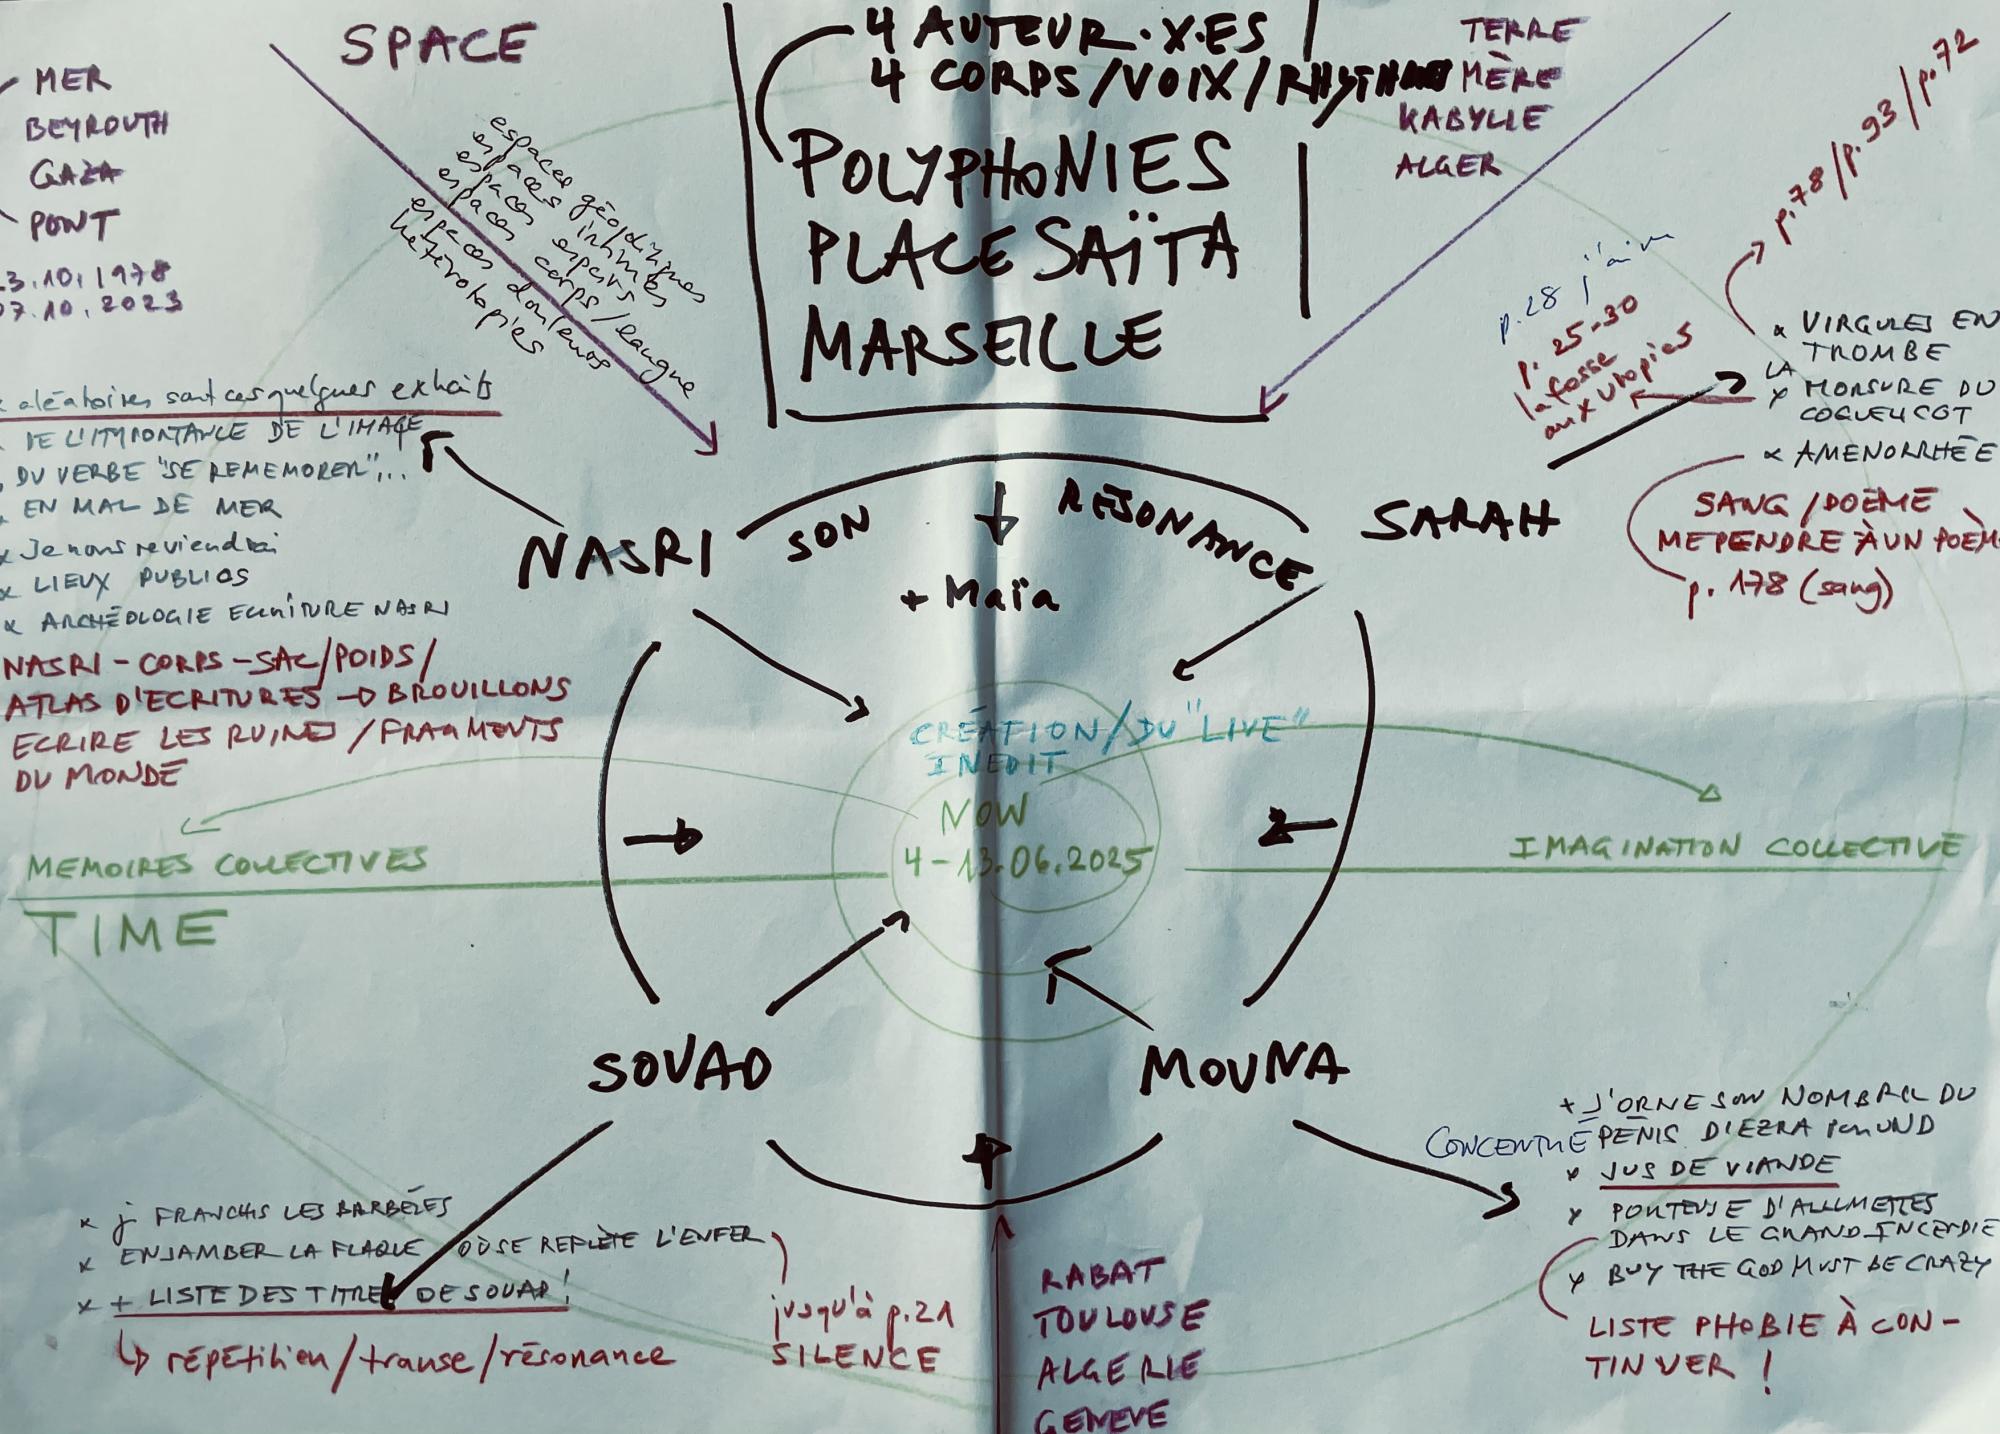 SPACE
MER
BEYROUTH
GAZA
PONT
3.10.1978
07.10.2023
espaces géopoétiques
espaces intimes
espaces espoirs
espaces corps/langue
espaces douleurs
hétérotopies
4 AUTEUR·X·ES
4 CORPS/VOIX/RHYTHM
POLYPHONIES
PLACE SAÏTA
MARSEILLE
TERRE
MÈRE
KABYLIE
ALGER
p.78/p.93/p.72
p.28 j'aime
p. 25-30
la fosse
aux utopies
x VIRGULES EN
TROMBE
x LA MORSURE DU
COQUELICOT
x AMENORRHÉE
SANG/POÈME
ME PENDRE À UN POÈM
p. 178 (sang)
aléatoires sont ces quelques extraits
DE L'IMPORTANCE DE L'IMAGE
DU VERBE "SE REMEMORER"...
EN MAL DE MER
x Je nous reviendrai
x LIEUX PUBLICS
x ARCHÉOLOGIE ECRITURE NASRI
NASRI - CORPS - SAC/POIDS/
ATLAS D'ECRITURES → BROUILLONS
ECRIRE LES RUINES / FRAGMENTS
DU MONDE
NASRI
SON
RESONANCE
SARAH
+ Maïa
CRÉATION/DU "LIVE"
INEDIT
NOW
4-13.06.2025
MEMOIRES COLLECTIVES
TIME
IMAGINATION COLLECTIVE
SOUAD
MOUNA
x j FRANCHIS LES BARBELÉS
x ENJAMBER LA FLAQUE OÙ SE REFLÈTE L'ENFER
x + LISTE DES TITRES DE SOUAD!
↳ répétition/transe/résonance
jusqu'à p.21
SILENCE
RABAT
TOULOUSE
ALGERIE
GENEVE
+ J'ORNE SON NOMBRIL DU
CONCENTRÉ PÉNIS D'EZRA POUND
x JUS DE VIANDE
x PORTEUSE D'ALLUMETTES
DANS LE GRAND INCENDIE
x BUY THE GOD MUST BE CRAZY
LISTE PHOBIE À CON-
TINUER !